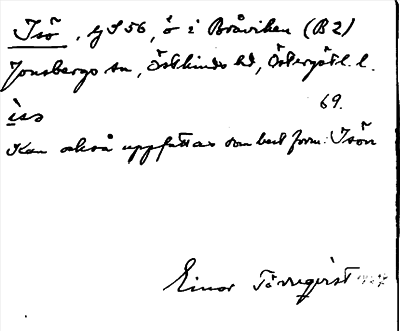 Isö, gS56, ö i Bråviken (B2)
Jonsbergs sn, Östkinds hd, Östergötl. l.
ìsə 69.
Kan också uppfattas som best form: Isön
Einar Törnqvist